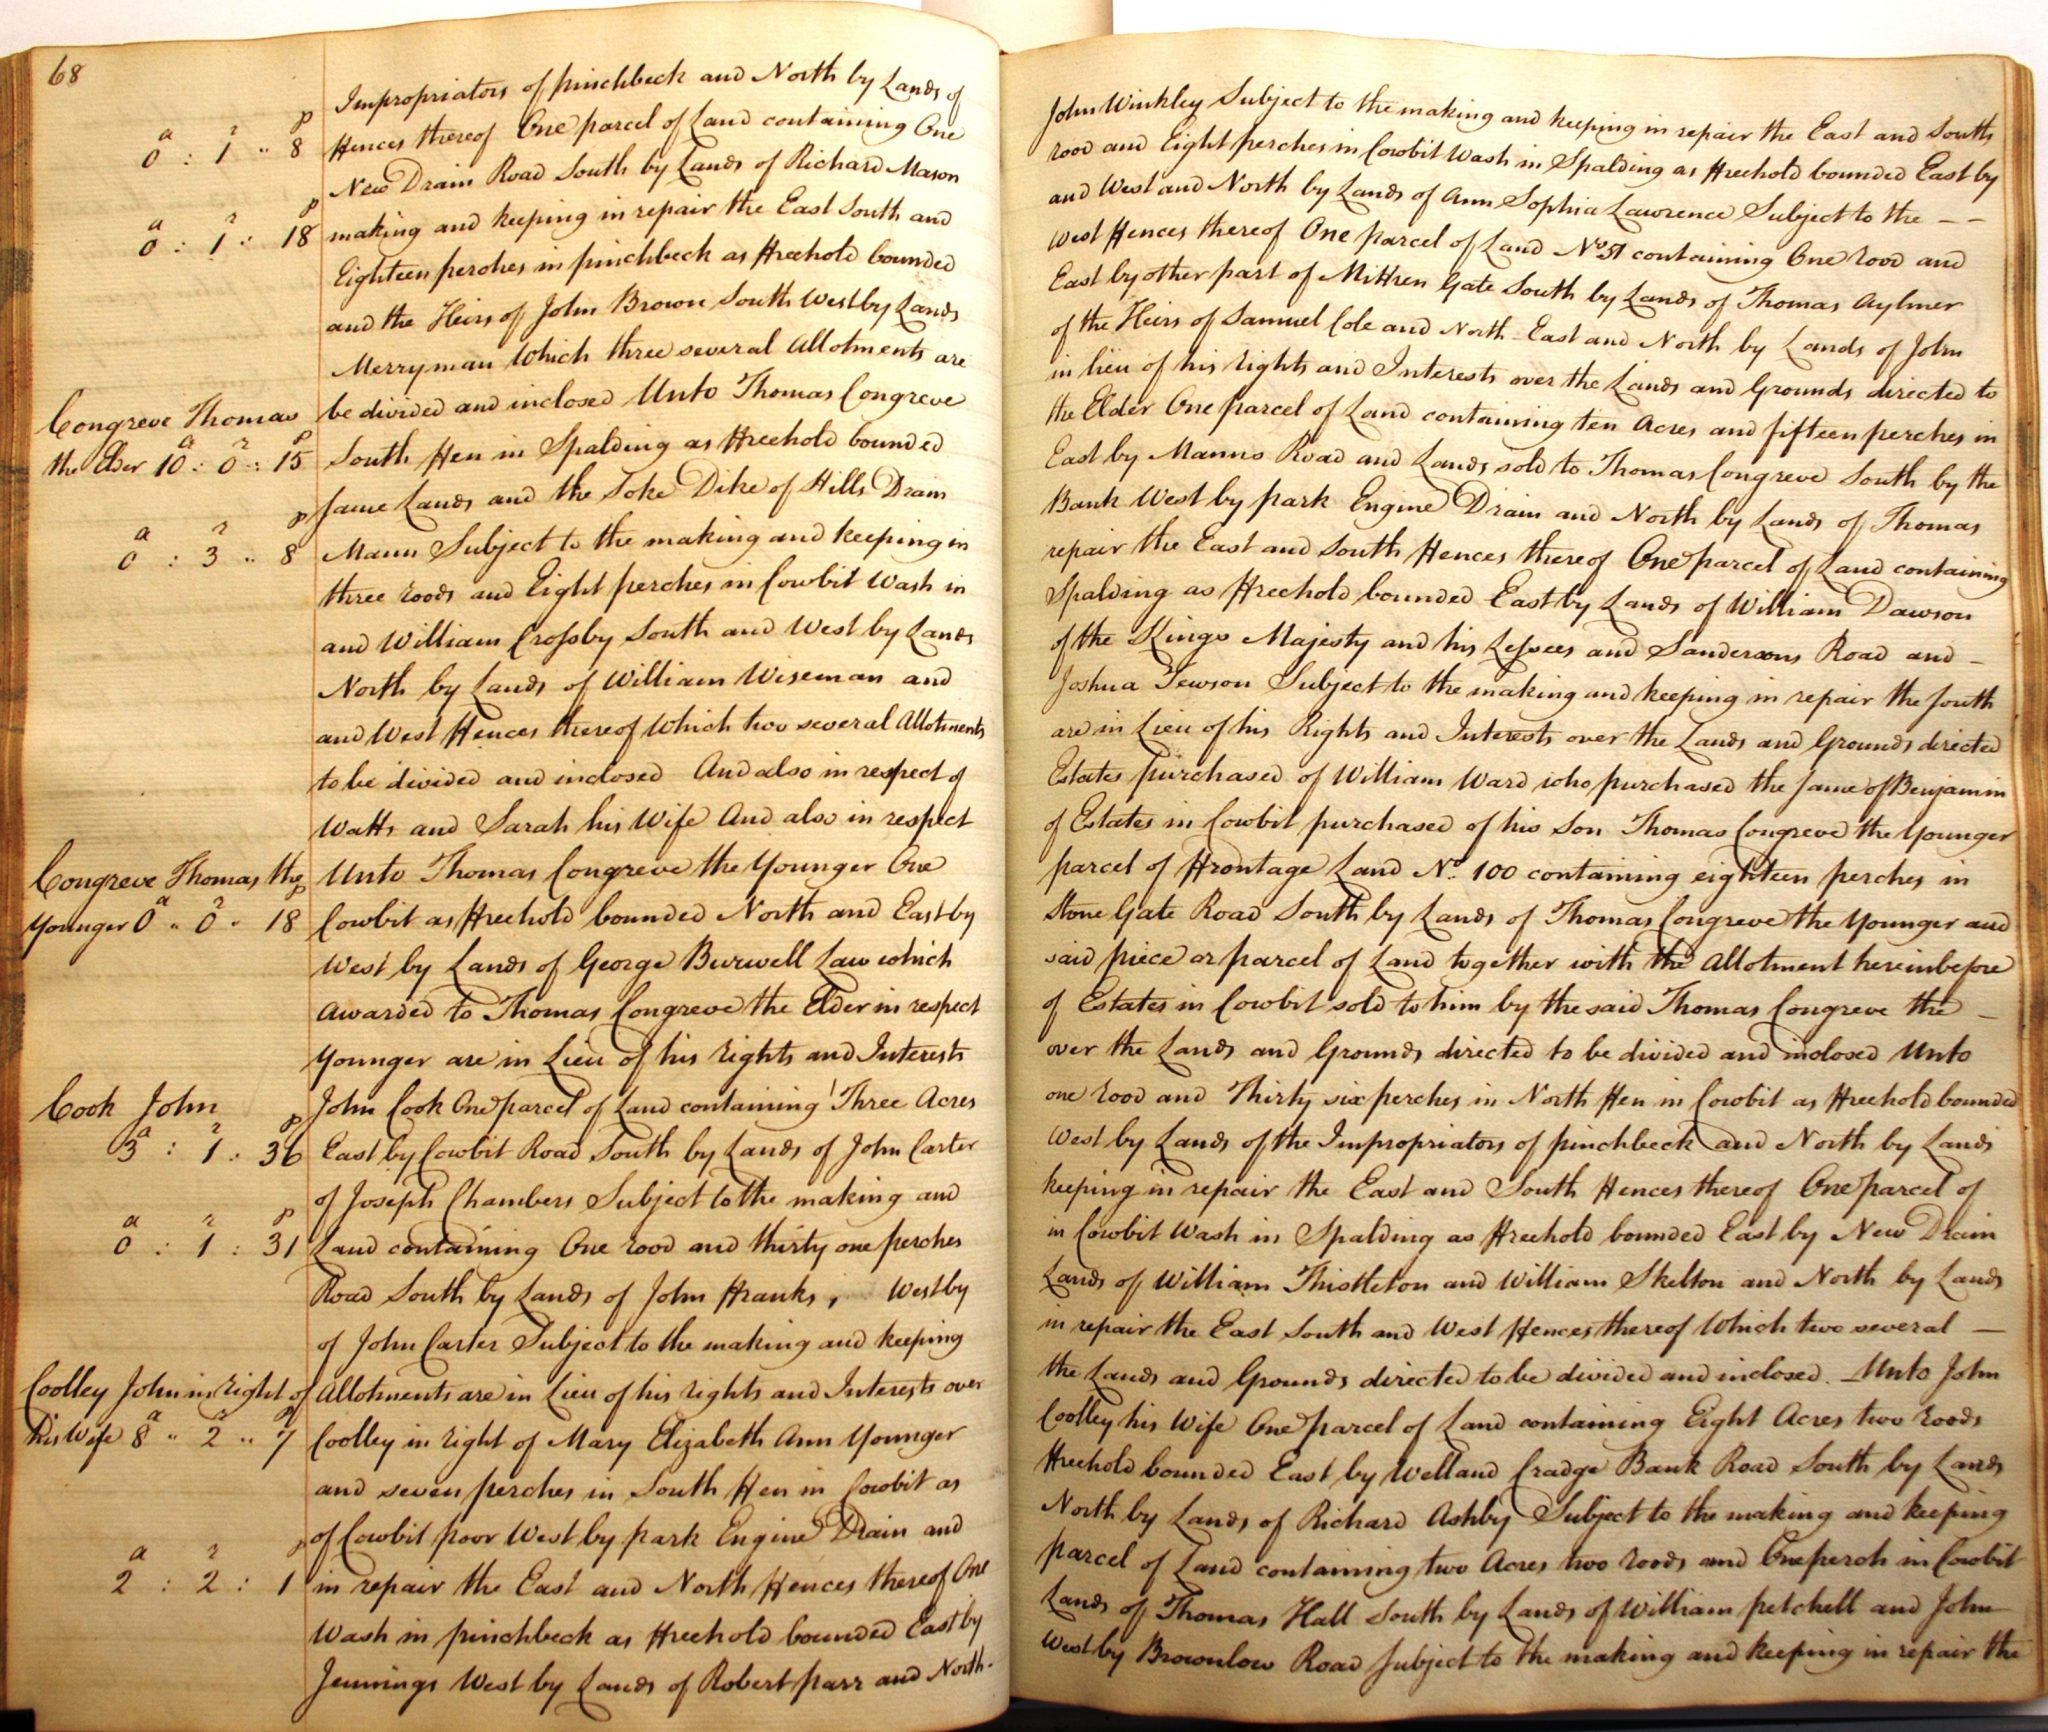 68
Impropriators of pinchbeck and North by Lands of
John Winkley Subject to the making and keeping in repair the East and South
a r p
0 : 1 .. 8
Fences thereof One parcel of Land containing One
rood and Eight perches in Cowbit Wash in Spalding as Freehold bounded East by
New Drain Road South by Lands of Richard Mason
and West and North by Lands of Ann Sophia Lawrence Subject to the — —
a r p
0 : 1 : 18
making and keeping in repair the East South and
West Fences thereof One parcel of Land No 51 containing One rood and
Eighteen perches in pinchbeck as Freehold bounded
East by other part of Mittren Gate South by Lands of Thomas Aylmer
and the Heirs of John Brown South West by Lands
of the Heirs of Samuel Cole and North East and North by Lands of John
Merryman Which three several Allotments are
in lieu of his rights and Interests over the Lands and Grounds directed to
Congreve Thomas
be divided and inclosed Unto Thomas Congreve
the Elder One parcel of Land containing ten Acres and fifteen perches in
a r p
the Elder 10 : 0 : 15
South Fen in Spalding as Freehold bounded
East by Manns Road and Lands sold to Thomas Congreve South by the
same Lands and the Soke Dike of Hills Drain
Bank West by park Engine Drain and North by Lands of Thomas
a r p
0 : 3 .. 8
Mann Subject to the making and keeping in
repair the East and South Fences thereof One parcel of Land containing
three roods and Eight perches in Cowbit Wash in
Spalding as Freehold bounded East by Lands of William Dawson
and William Crosby South and West by Lands
of the Kings Majesty and his Lessees and Sandersons Road and —
North by Lands of William Wiseman and
Joshua Tewson Subject to the making and keeping in repair the South
and West Fences thereof Which two several Allotments
are in Lieu of his Rights and Interests over the Lands and Grounds directed
to be divided and inclosed And also in respect of
Estates purchased of William Ward who purchased the same of Benjamin
Watts and Sarah his Wife And also in respect
of Estates in Cowbit purchased of his Son Thomas Congreve the Younger
Congreve Thomas the
Unto Thomas Congreve the Younger One
parcel of Frontage Land No. 100 containing eighteen perches in
a r p
Younger 0 .. 0 .. 18
Cowbit as Freehold bounded North and East by
Stone Gate Road South by Lands of Thomas Congreve the Younger and
West by Lands of George Burwell Law which
said piece or parcel of Land together with the Allotment hereinbefore
Awarded to Thomas Congreve the Elder in respect
of Estates in Cowbit sold to him by the said Thomas Congreve the —
Younger are in Lieu of his rights and Interests
over the Lands and Grounds directed to be divided and inclosed Unto
Cook John
John Cook One parcel of Land containing Three Acres
one rood and Thirty six perches in North Fen in Cowbit as Freehold bounded
a r p
3 : 1 : 36
East by Cowbit Road South by Lands of John Carter
West by Lands of the Impropriators of pinchbeck and North by Lands
of Joseph Chambers Subject to the making and
keeping in repair the East and South Fences thereof One parcel of
a r p
0 : 1 : 31
Land containing One rood and thirty one perches
in Cowbit Wash in Spalding as Freehold bounded East by New Drain
Road South by Lands of John Franks, West by
Lands of William Thistleton and William Skelton and North by Lands
of John Carter Subject to the making and keeping
in repair the East South and West Fences thereof Which two several —
Coolley John in right of
Allotments are in Lieu of his rights and Interests over
the Lands and Grounds directed to be divided and inclosed. Unto John
a r p
his Wife 8 .. 2 .. 7
Coolley in right of Mary Elizabeth Ann Younger
Coolley his Wife One parcel of Land containing Eight Acres two roods
and seven perches in South Fen in Cowbit as
Freehold bounded East by Welland Cradge Bank Road South by Lands
of Cowbit poor West by park Engine Drain and
North by Lands of Richard Ashby Subject to the making and keeping
a r p
2 : 2 : 1
in repair the East and North Fences thereof One
parcel of Land containing two Acres two roods and One perch in Cowbit
Wash in pinchbeck as Freehold bounded East by
Lands of Thomas Hall South by Lands of William petchell and John
Jennings West by Lands of Robert parr and North
West by Brownlow Road subject to the making and keeping in repair the